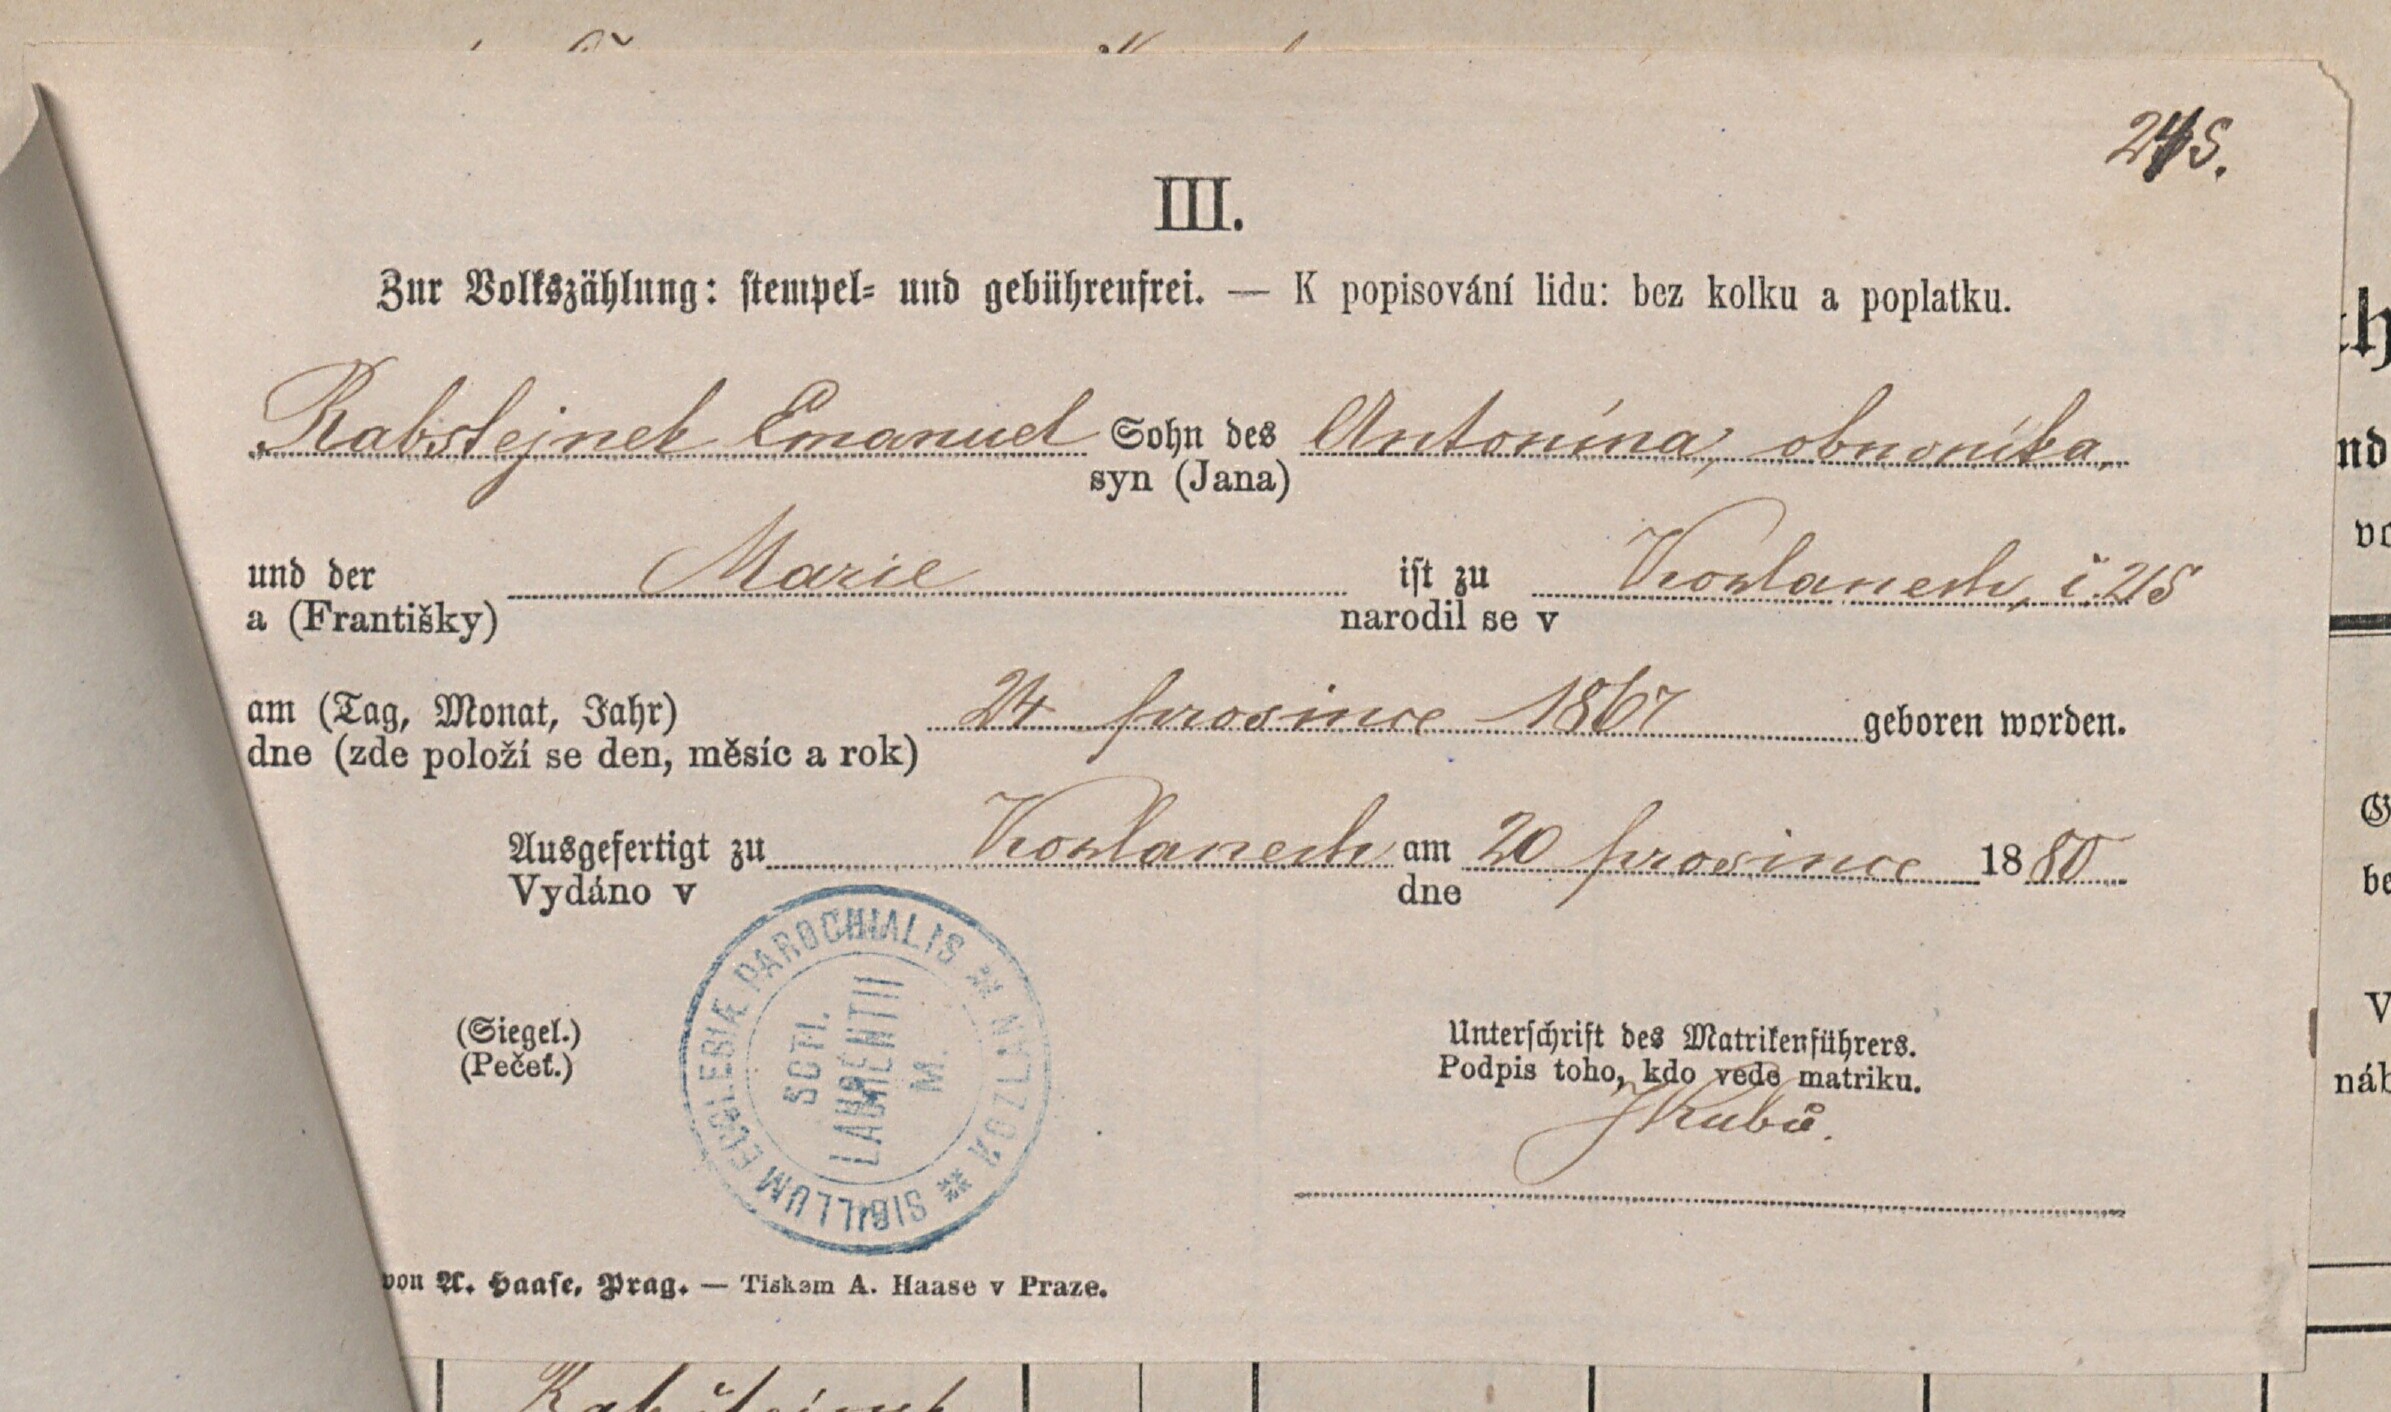 245.
III.
Zur Volkszählung: stempel= und gebührenfrei. — K popisování lidu: bez kolku a poplatku.
Rabstejnek Emanuel Sohn des Antonína, obuvníka,
syn (Jana)
und der Marie ist zu Kozlanech, č. 215
a (Františky) narodil se v
am (Tag, Monat, Jahr) 24 prosince 1867 geboren worden.
dne (zde položí se den, měsíc a rok)
Ausgefertigt zu Kozlanech am 20 prosince 1880
Vydáno v dne
SIGILLUM ECCLESIÆ PAROCHIALIS * KOZLAN *
SCTI.
LAURENTII
M.
(Siegel.)
(Pečeť.)
Unterschrift des Matrikenführers.
Podpis toho, kdo vede matriku.
JKubů.
von A. Haase, Prag. — Tiskem A. Haase v Praze.